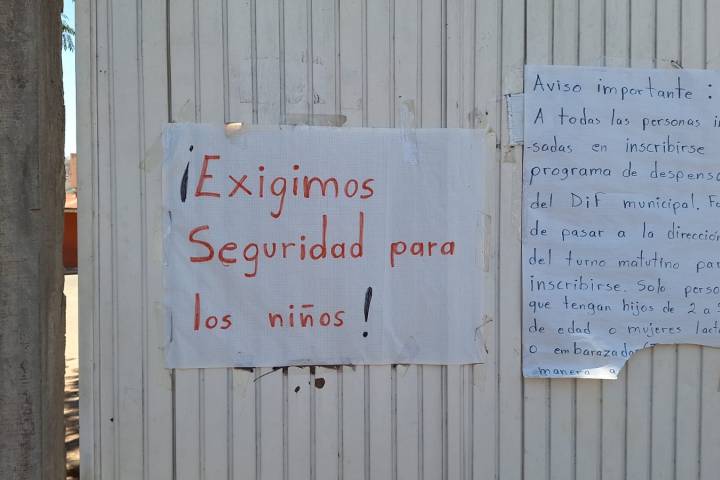 ¡Exigimos
Seguridad para
los niños!
Aviso importante:
A todas las personas
-sadas en inscribirse
programa de
del Dif municipal.
de pasar a la dirección
del turno matutino
inscribirse. Solo
que tengan hijos de 2 a
de edad o mujeres
o
manera